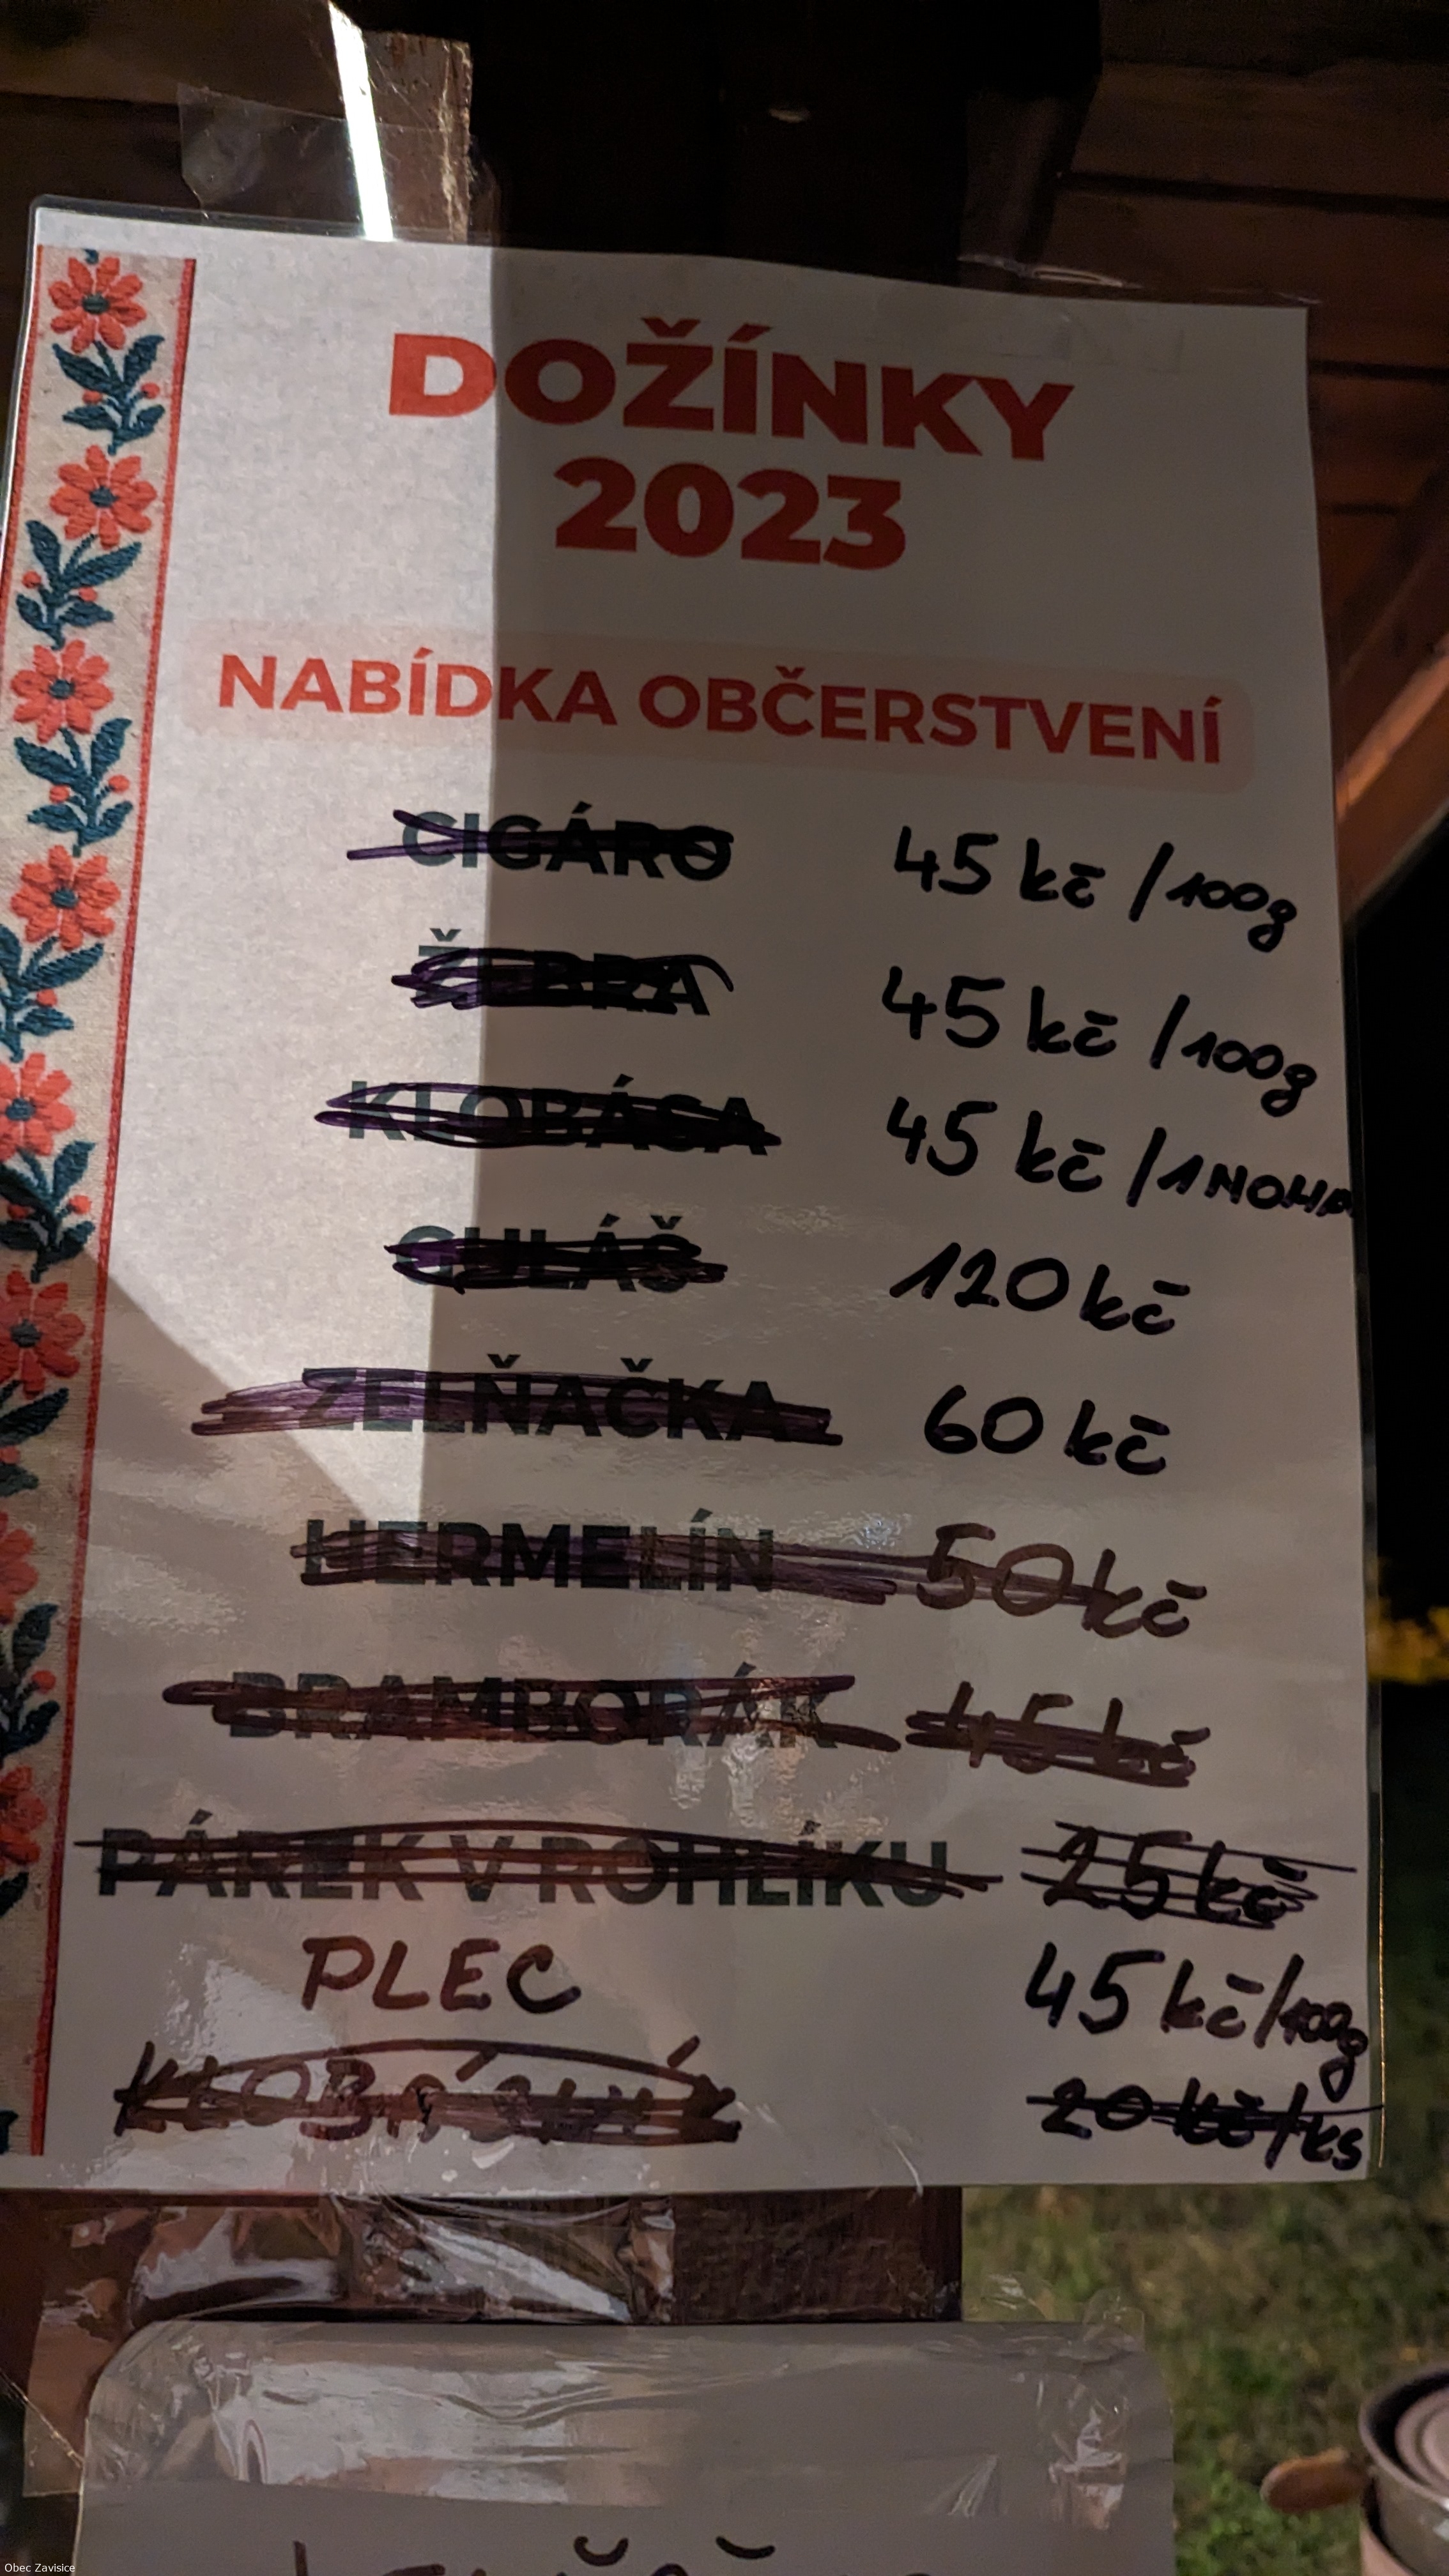 DOŽÍNKY
2023
NABÍDKA OBČERSTVENÍ
CIGÁRO 45 kč /100g
ŽEBRA 45 kč /100g
KLOBÁSA 45 kč /1 NOHA
GULÁŠ 120 kč
ZELŇAČKA 60 kč
HERMELÍN 50 kč
BRAMBORÁK 45 kč
PÁREK V ROHLÍKU 25 kč
PLEC 45 kč/100g
20 kč/ks
Obec Zavisice